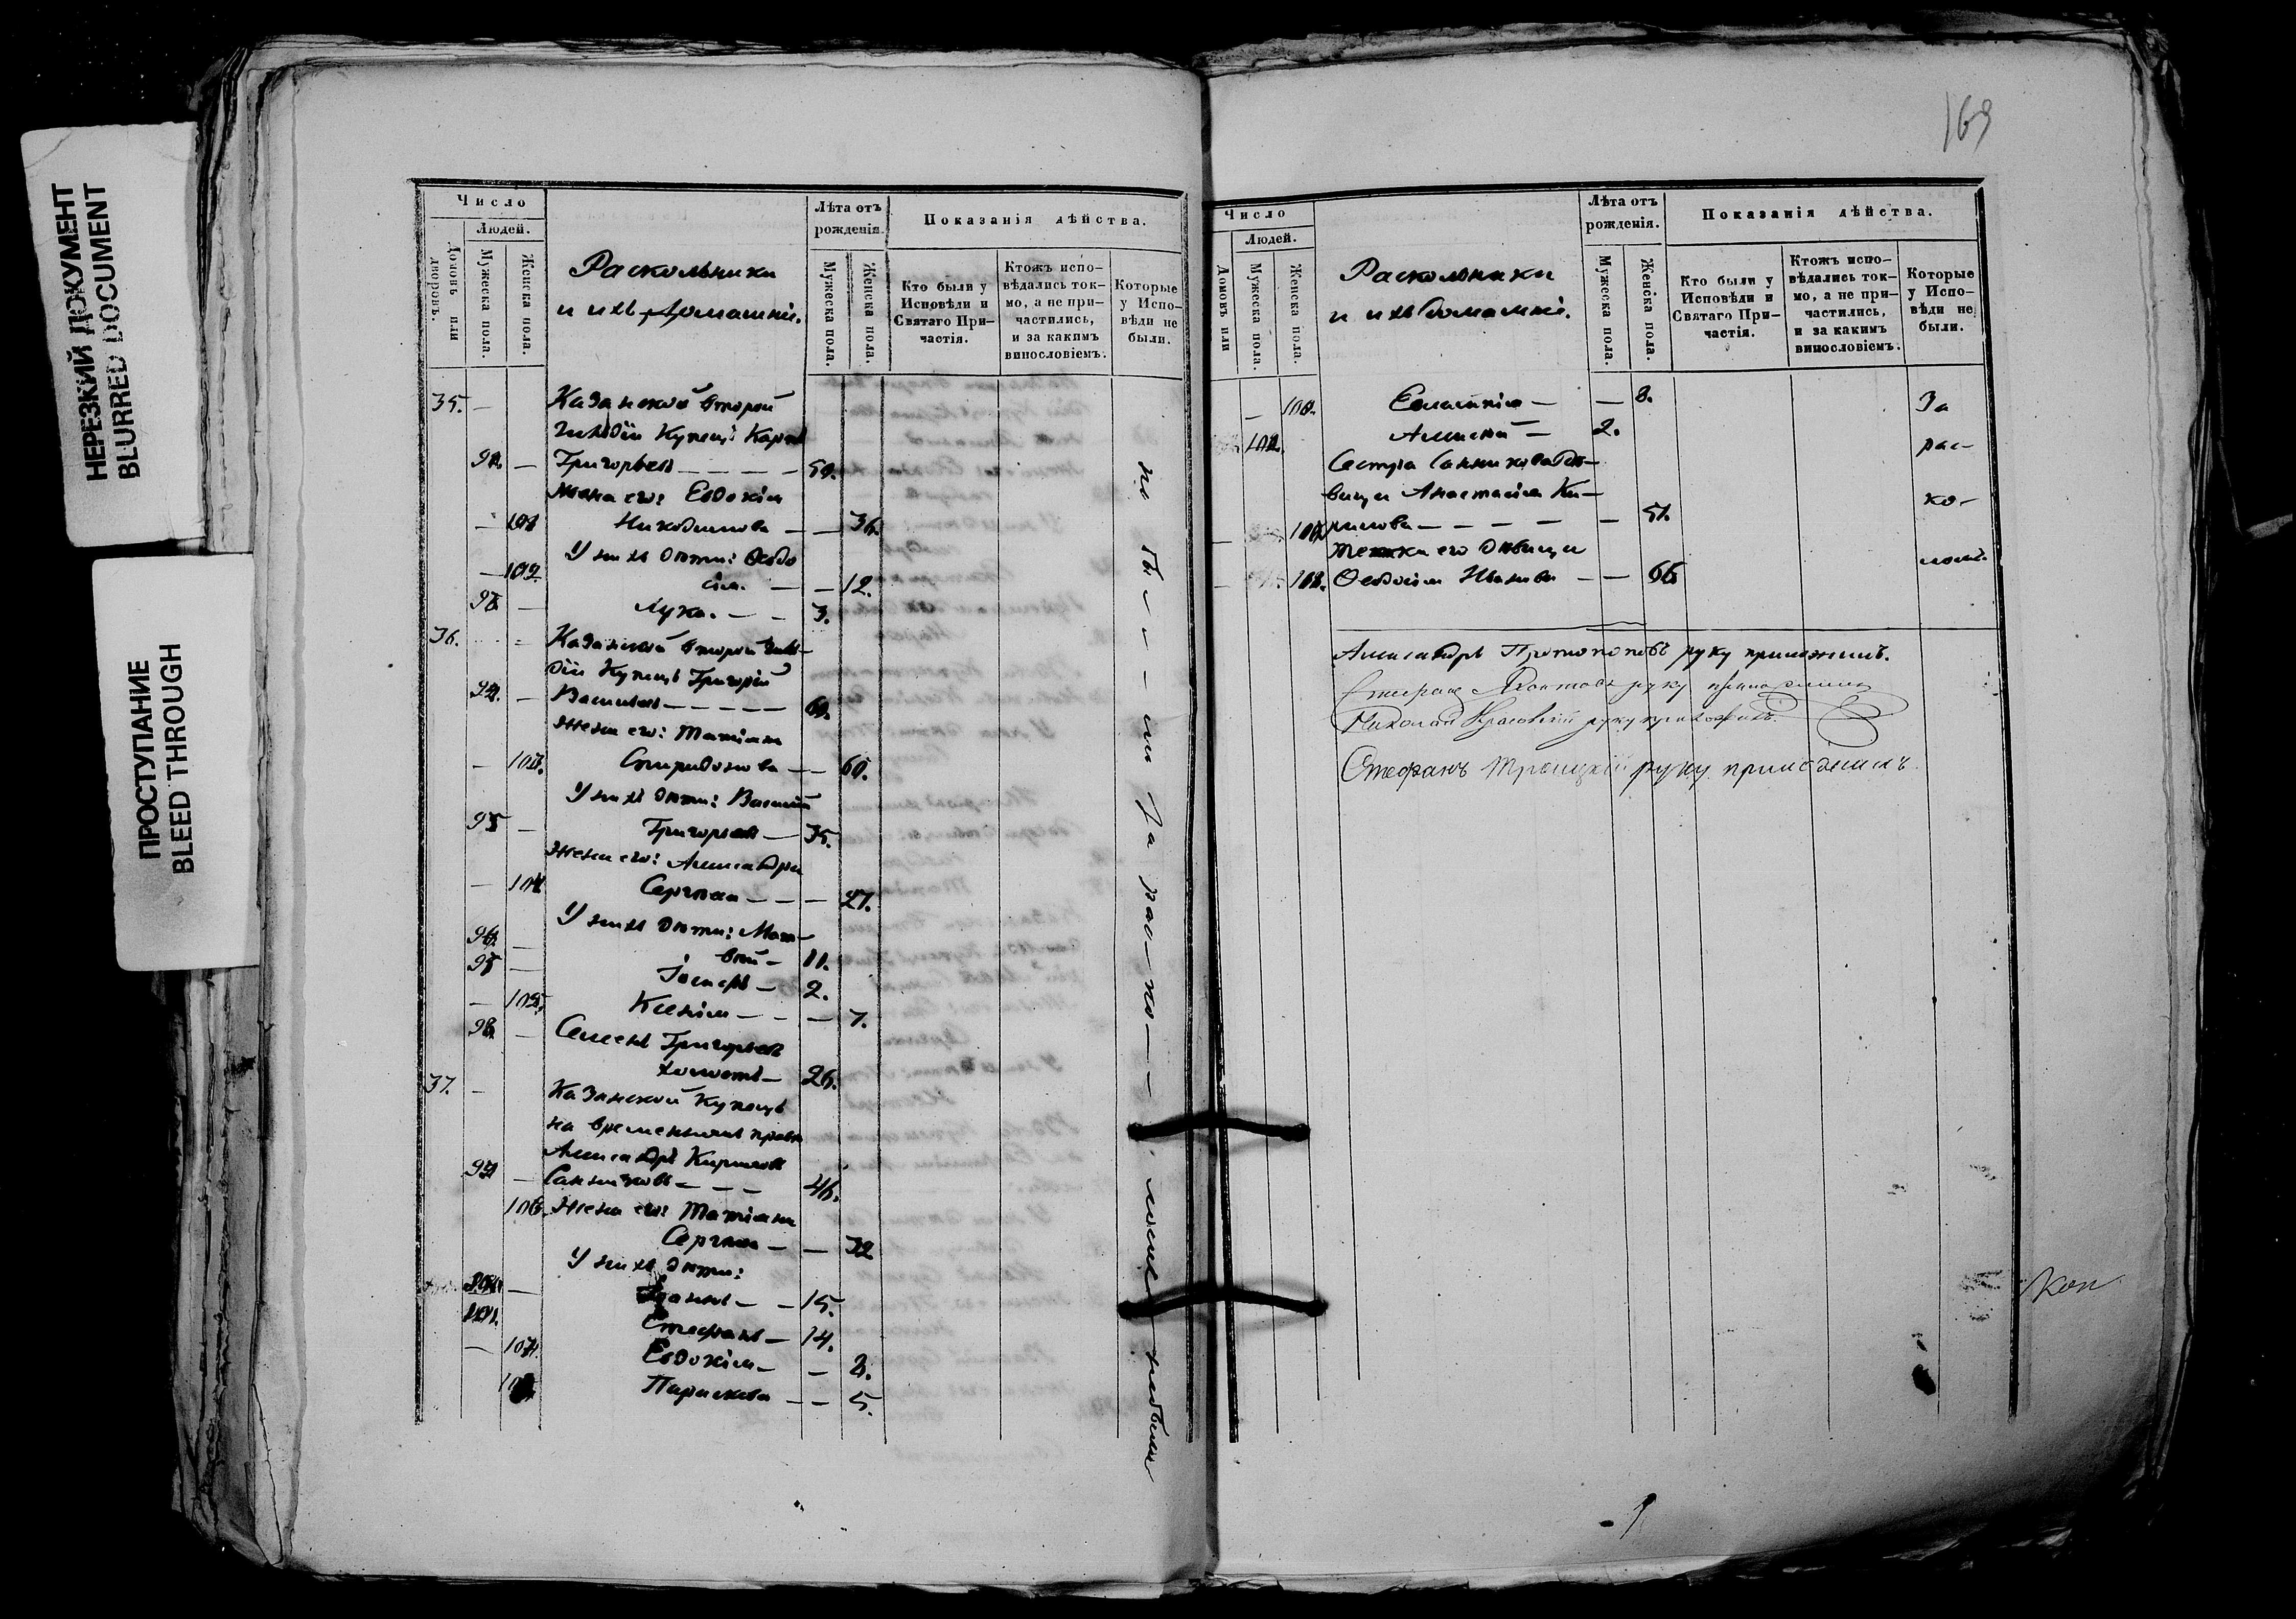 НЕРЕЗКИЙ ДОКУМЕНТ
BLURRED DOCUMENT
ПРОСТУПАНИЕ
BLEED THROUGH
Число
Людей.
Домовъ или дворовъ.
Мужеска пола.
Женска пола.
Раскольники
и ихъ домашніе.
Лѣта отъ рожденія.
Мужеска пола.
Женска пола.
Показанія дѣйства.
Кто были у Исповѣди и Святаго При-частія.
Ктожъ испо-вѣдались ток-мо, а не при-частились, и за какимъ винословіемъ.
Которые у Испо-вѣди не были.
35. — Казанской второй
гильдіи Купецъ Карпъ
— Григорьевъ — — — —
Жена его: Евдокія
— Никодимова — — 36.
У нихъ дѣти: Ѳеодо
— 102. сія. — — 12.
— Лука. — — 3.
36. Казанской второй гиль-
діи Купецъ Григорій
— Васильевъ — — — — —
Жена его: Татіана
— Спиридонова — — 60.
У нихъ дѣти: Василій
95 — Григорьевъ — 35.
Жена его: Александра
— 104. Сергѣева — — — 27.
У нихъ дѣти: Мат-
96. — вѣй —
— Іосифъ — 2.
— 105. Ксенія — — — 7.
98. — Семенъ Григорьевъ
холостъ — 26.
37. — Казанской Купецъ
на временныхъ правѣ
Александръ Кириловъ
— Санниковъ — — — 46.
106. Жена его: Татіана
Сергѣева — — 32
У нихъ дѣти:
— — 15.
Стефанъ — 14.
— 107. Евдокія — —
Параскева — — 5.
не бы — ли за рас — ко — — ломъ — небыли
169
Число
Людей.
Домовъ или
Мужеска пола.
Женска пола.
Раскольники
и ихъ домашніе.
Лѣта отъ рожденія.
Мужеска пола.
Женска пола.
Показанія дѣйства.
Кто были у Исповѣди и Святаго При-частія.
Ктожъ испо-вѣдались ток-мо, а не при-частились, и за какимъ винословіемъ.
Которые у Испо-вѣди не были.
— — — 8. За
Алексѣй — 2.
рас-
Сестра Санникова дѣ-
вица Анастасія Ки-
ко-
рилова — — — — — 51.
тетка его дѣвица
ломъ.
Ѳеодосія Иванова — — 66.
Александръ Протопоповъ руку приложилъ.
руку приложилъ
Николай руку приложилъ.
Стефанъ Троицкій руку приложилъ.
Коп